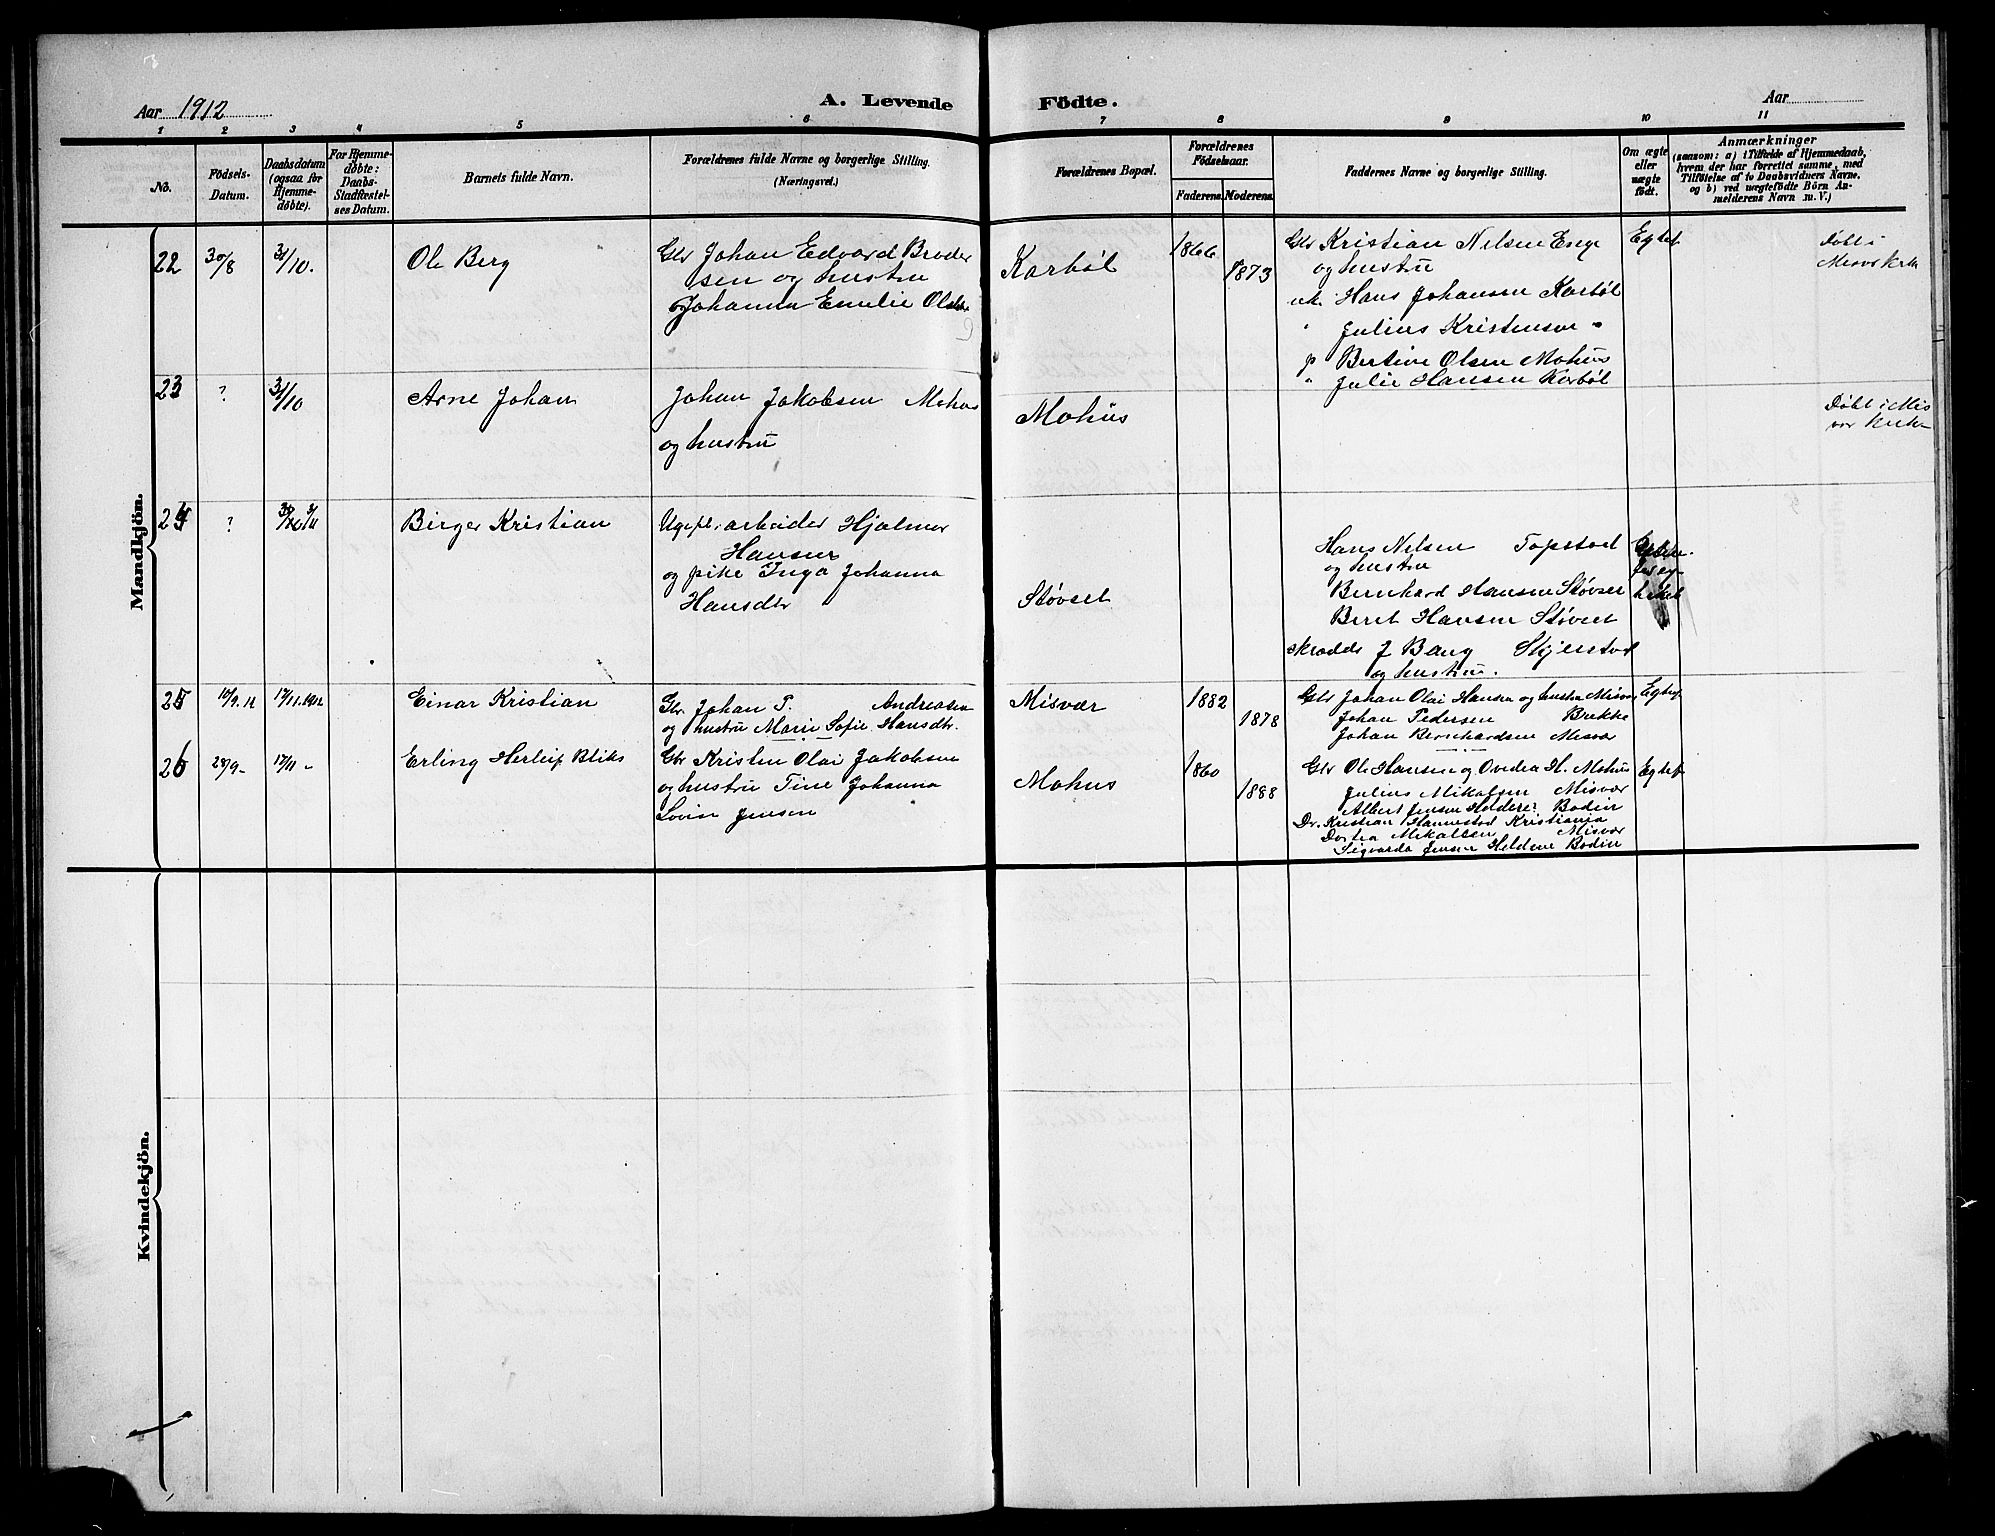 Aar 1912
A. Levende Födte.
Aar
1 2 3 4 5 6 7 8 9 10 11
No.
Födsels-
Datum.
Daabsdatum
(ogsaa for
Hjemme-
döbte).
For Hjemme-
döbte:
Daabs-
Stadfæstel-
ses Datum.
Barnets fulde Navn.
Forældrenes fulde Navne og borgerlige Stilling.
(Næringsvei.)
Forældrenes Bopæl.
Forældrenes
Födselsaar.
Faderens. Moderens.
Faddernes Navne og borgerlige Stilling.
Om ægte
eller
uægte
födt.
Anmærkninger
(saasom: a) i Tilfælde af Hjemmedaab,
hvem der har forrettet samme, med
Tilföielse af to Daabsvidners Navne.
og b) ved uægtefödte Börn An-
melderens Navn m.V.)
Mandkjön.
22 30/8 31/10. Ole Berg
Gbr Johan Edvard Broder
sen og hustru
Johanna Emelie Olsdtr
Karbøl 1866 1873
Gbr Kristian Nilsen Enge
og hustru
uk. Hans Johansen Karbøl
" Julius Kristensen "
p Bertine Olsen Mohus
" Julie Hansen Karbøl
Egtef
Døbt i
Misvær Kirke
23 ? 31/10 Arne Johan
Johan Jakobsen Mohus
og hustru
Mohus
Døbt i Mis
vær Kirke
24 ? Birger Kristian
arbeider Hjalmar
Hansen
og pike Inga Johanna
Hansdtr
Støvset
Hans Nilsen Topstad
og hustru
Bernhard Hansen Støvset
Beret Hansen Støvset
skrædder J Bang Skjerstad
og hustru.
25 10/9.12 17/11.1912 Einar Kristian
Gbr Johan P. Andreasen
og hustru Marie Sofie Hansdtr.
Misvær 1882 1878
Gbr Johan Olai Hansen og hustru Misvær
Johan Pedersen Brekke
Johan Bernhardsen Misvær
Egtef
26 29/9 - 17/11 - Erling Herleif Bliks
Gbr Kristen Olai Jakobsen
og hustru Tine Johanna
Lovise Jensen
Mohus 1860 1888
Gbr Ole Hansen og Ovedia H. Mohus
Julius Mikalsen Misvær
Albert Jensen Bodin
Dr. Kristian Hannestad Kristiania
Dortea Mikalsen Misvær
Sigvarda Jensen Bodin
Egtef
Kvindekjön.